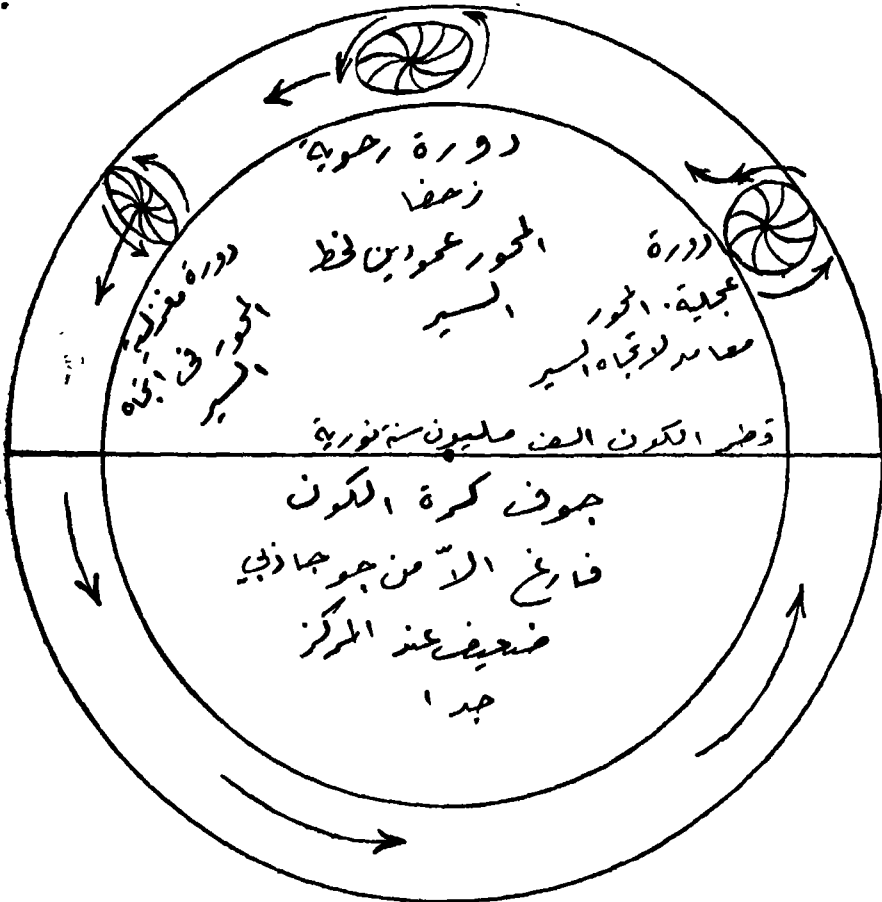 دورة رحوية
زحفا
المحور عمودين لخط
السير
دورة
عجلية. المحور
معامد لاتجاه السير
دورة مغزلية
المحور فى اتجاه
السير
قطر الكون الف مليون سنة نورية
جوف كرة الكون
فارغ الاّ من جو جاذبي
ضعيف عند المركز
جدا